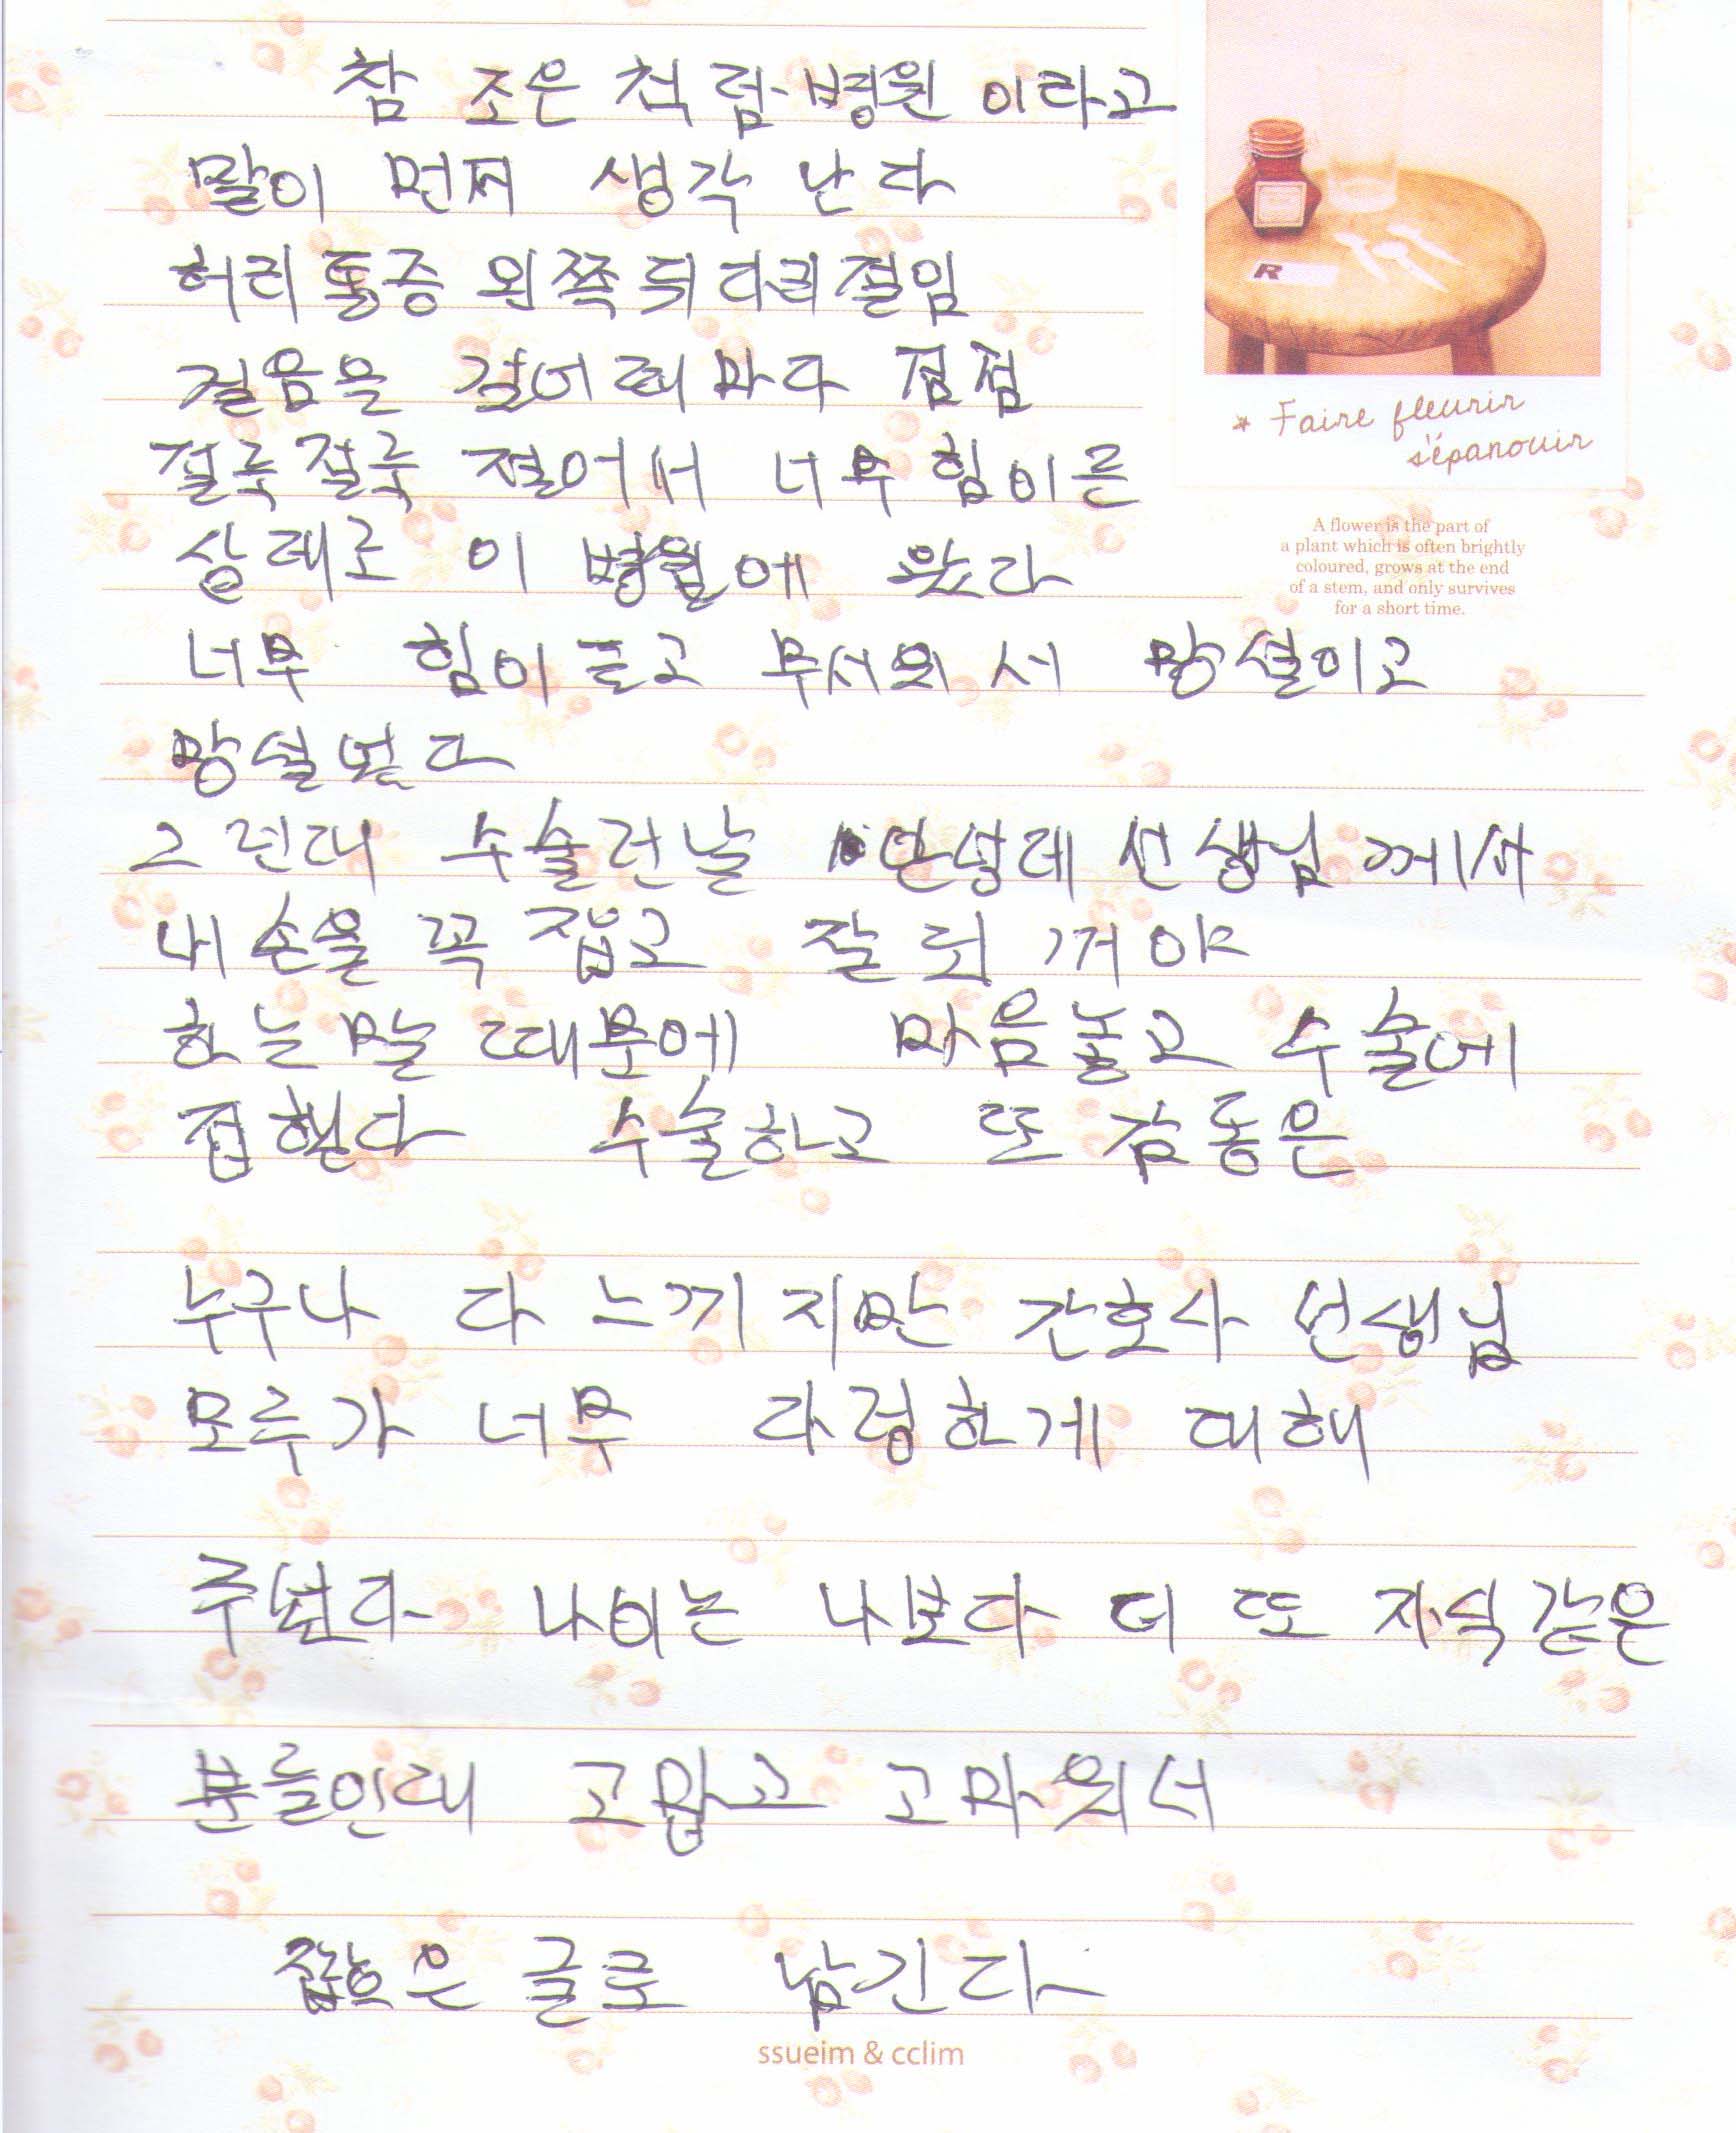 참 조은 척 럼 병원 이라고
말이 먼저 생각 난다
허리 통증 왼쪽 뒤 다리 절임
걸음을 걸어 때마다 점점
절룩절룩 절어서 너무 힘이른
상태로 이 병원에 왔다
너무 힘이들고 무서워서 망설이고
망설였다
그런대 수술런날 안성례 선생님께서
내 손을 꼭 잡고 잘 되꺼야
하는말 때문에 마음놓고 수술에
접했다 수술하고 또 감동은
누구나 다 느끼지만 간호사 선생님
모두가 너무 다정하게 대해
주셨다 나이는 나보다 더 또 자식같은
분들인대 고맙고 고마워서
짧은 글로 남긴다
* Faire fleurir
s'épanouir
A flower is the part of
a plant which is often brightly
coloured, grows at the end
of a stem, and only survives
for a short time.
R
ssueim & cclim